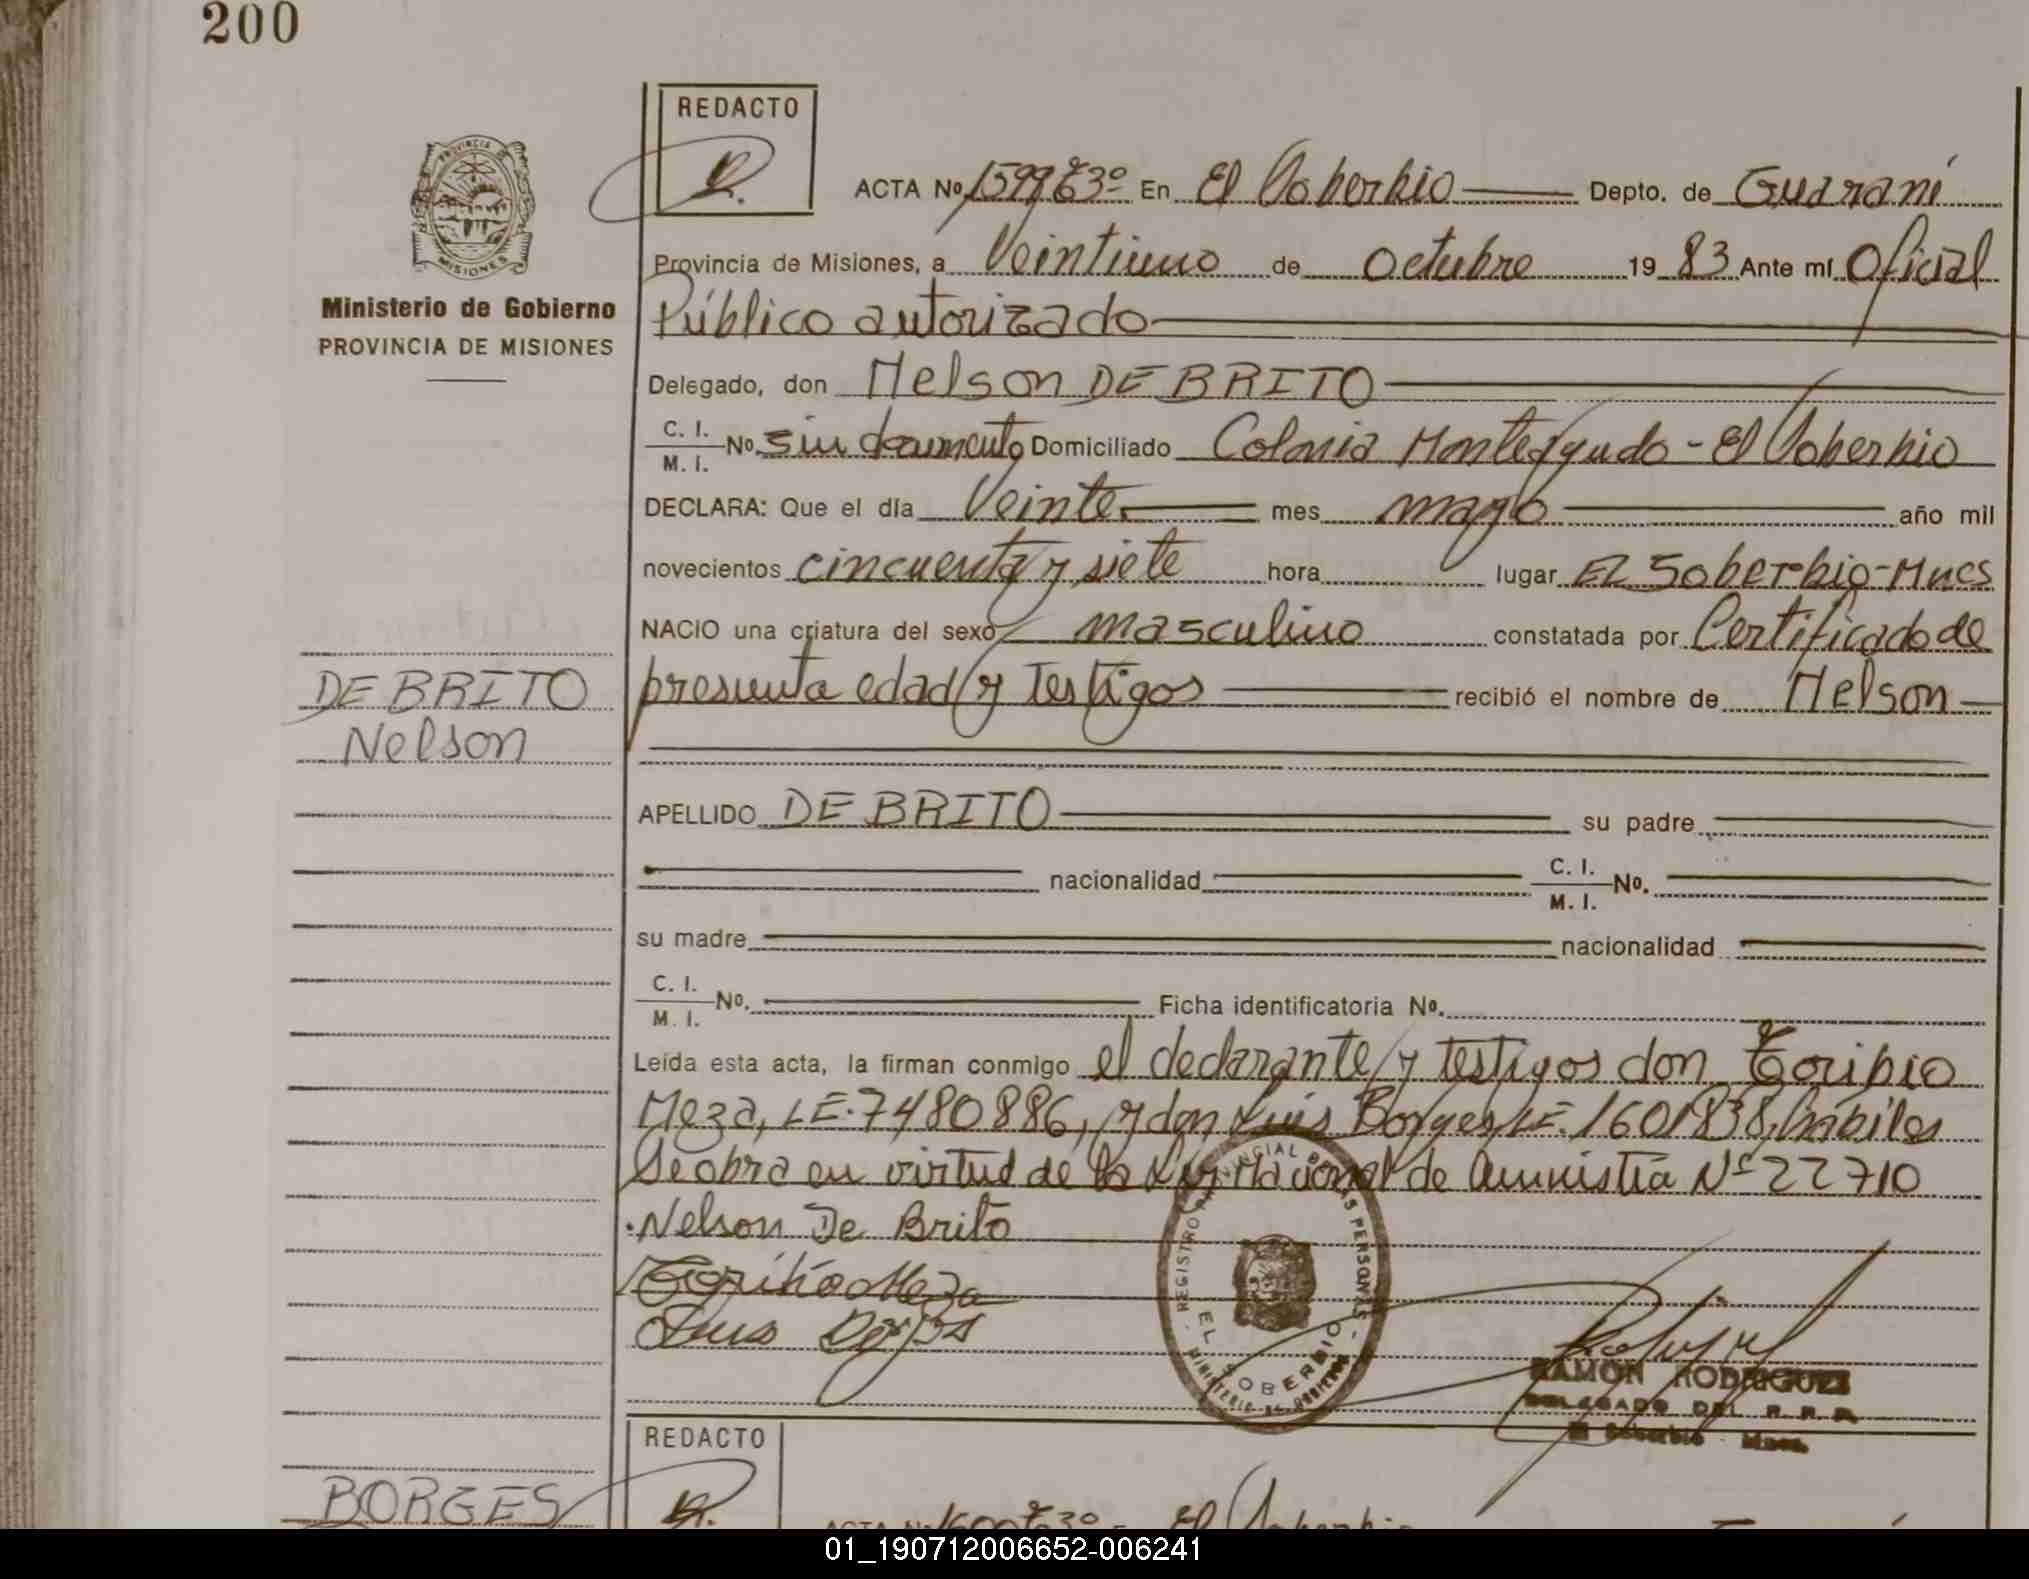 200
REDACTO
ACTA Nº 1599 T3º En El Soberbio Depto. de Guaraní
PROVINCIA DE MISIONES
Provincia de Misiones, a Veintiuno de octubre 19 83 Ante mí Oficial
Ministerio de Gobierno
PROVINCIA DE MISIONES
Público autorizado
Delegado, don Nelson DE BRITO
C. I.
M. I. No. sin documento Domiciliado Colonia Monteagudo - El Soberbio
DECLARA: Que el día Veinte mes mayo año mil
novecientos cincuenta y siete hora lugar EL Soberbio-Mnes
NACIO una criatura del sexo masculino constatada por Certificado de
DE BRITO
Nelson
presunta edad y testigos recibió el nombre de Nelson
APELLIDO DE BRITO su padre
nacionalidad C. I.
M. I. No.
su madre nacionalidad
C. I.
M. I. No. Ficha identificatoria No.
Leída esta acta, la firman conmigo el declarante y testigos don Toribio
Meza, LE. 7480886, y don Luis Borges LE. 1601838, hábiles
Se obra en virtud de la Ley Nacional de Amnistía Nº 22710
Nelson De Brito
Toribio Meza
Luis
REGISTRO PROVINCIAL DE LAS PERSONAS
EL SOBERBIO
MINISTERIO DE GOBIERNO
RAMON RODRIGUEZ
DELEGADO DEL R. P. P.
El Soberbio - Mnes.
REDACTO
BORGES
ACTA Nº 1600 T3º En El Soberbio
01_190712006652-006241